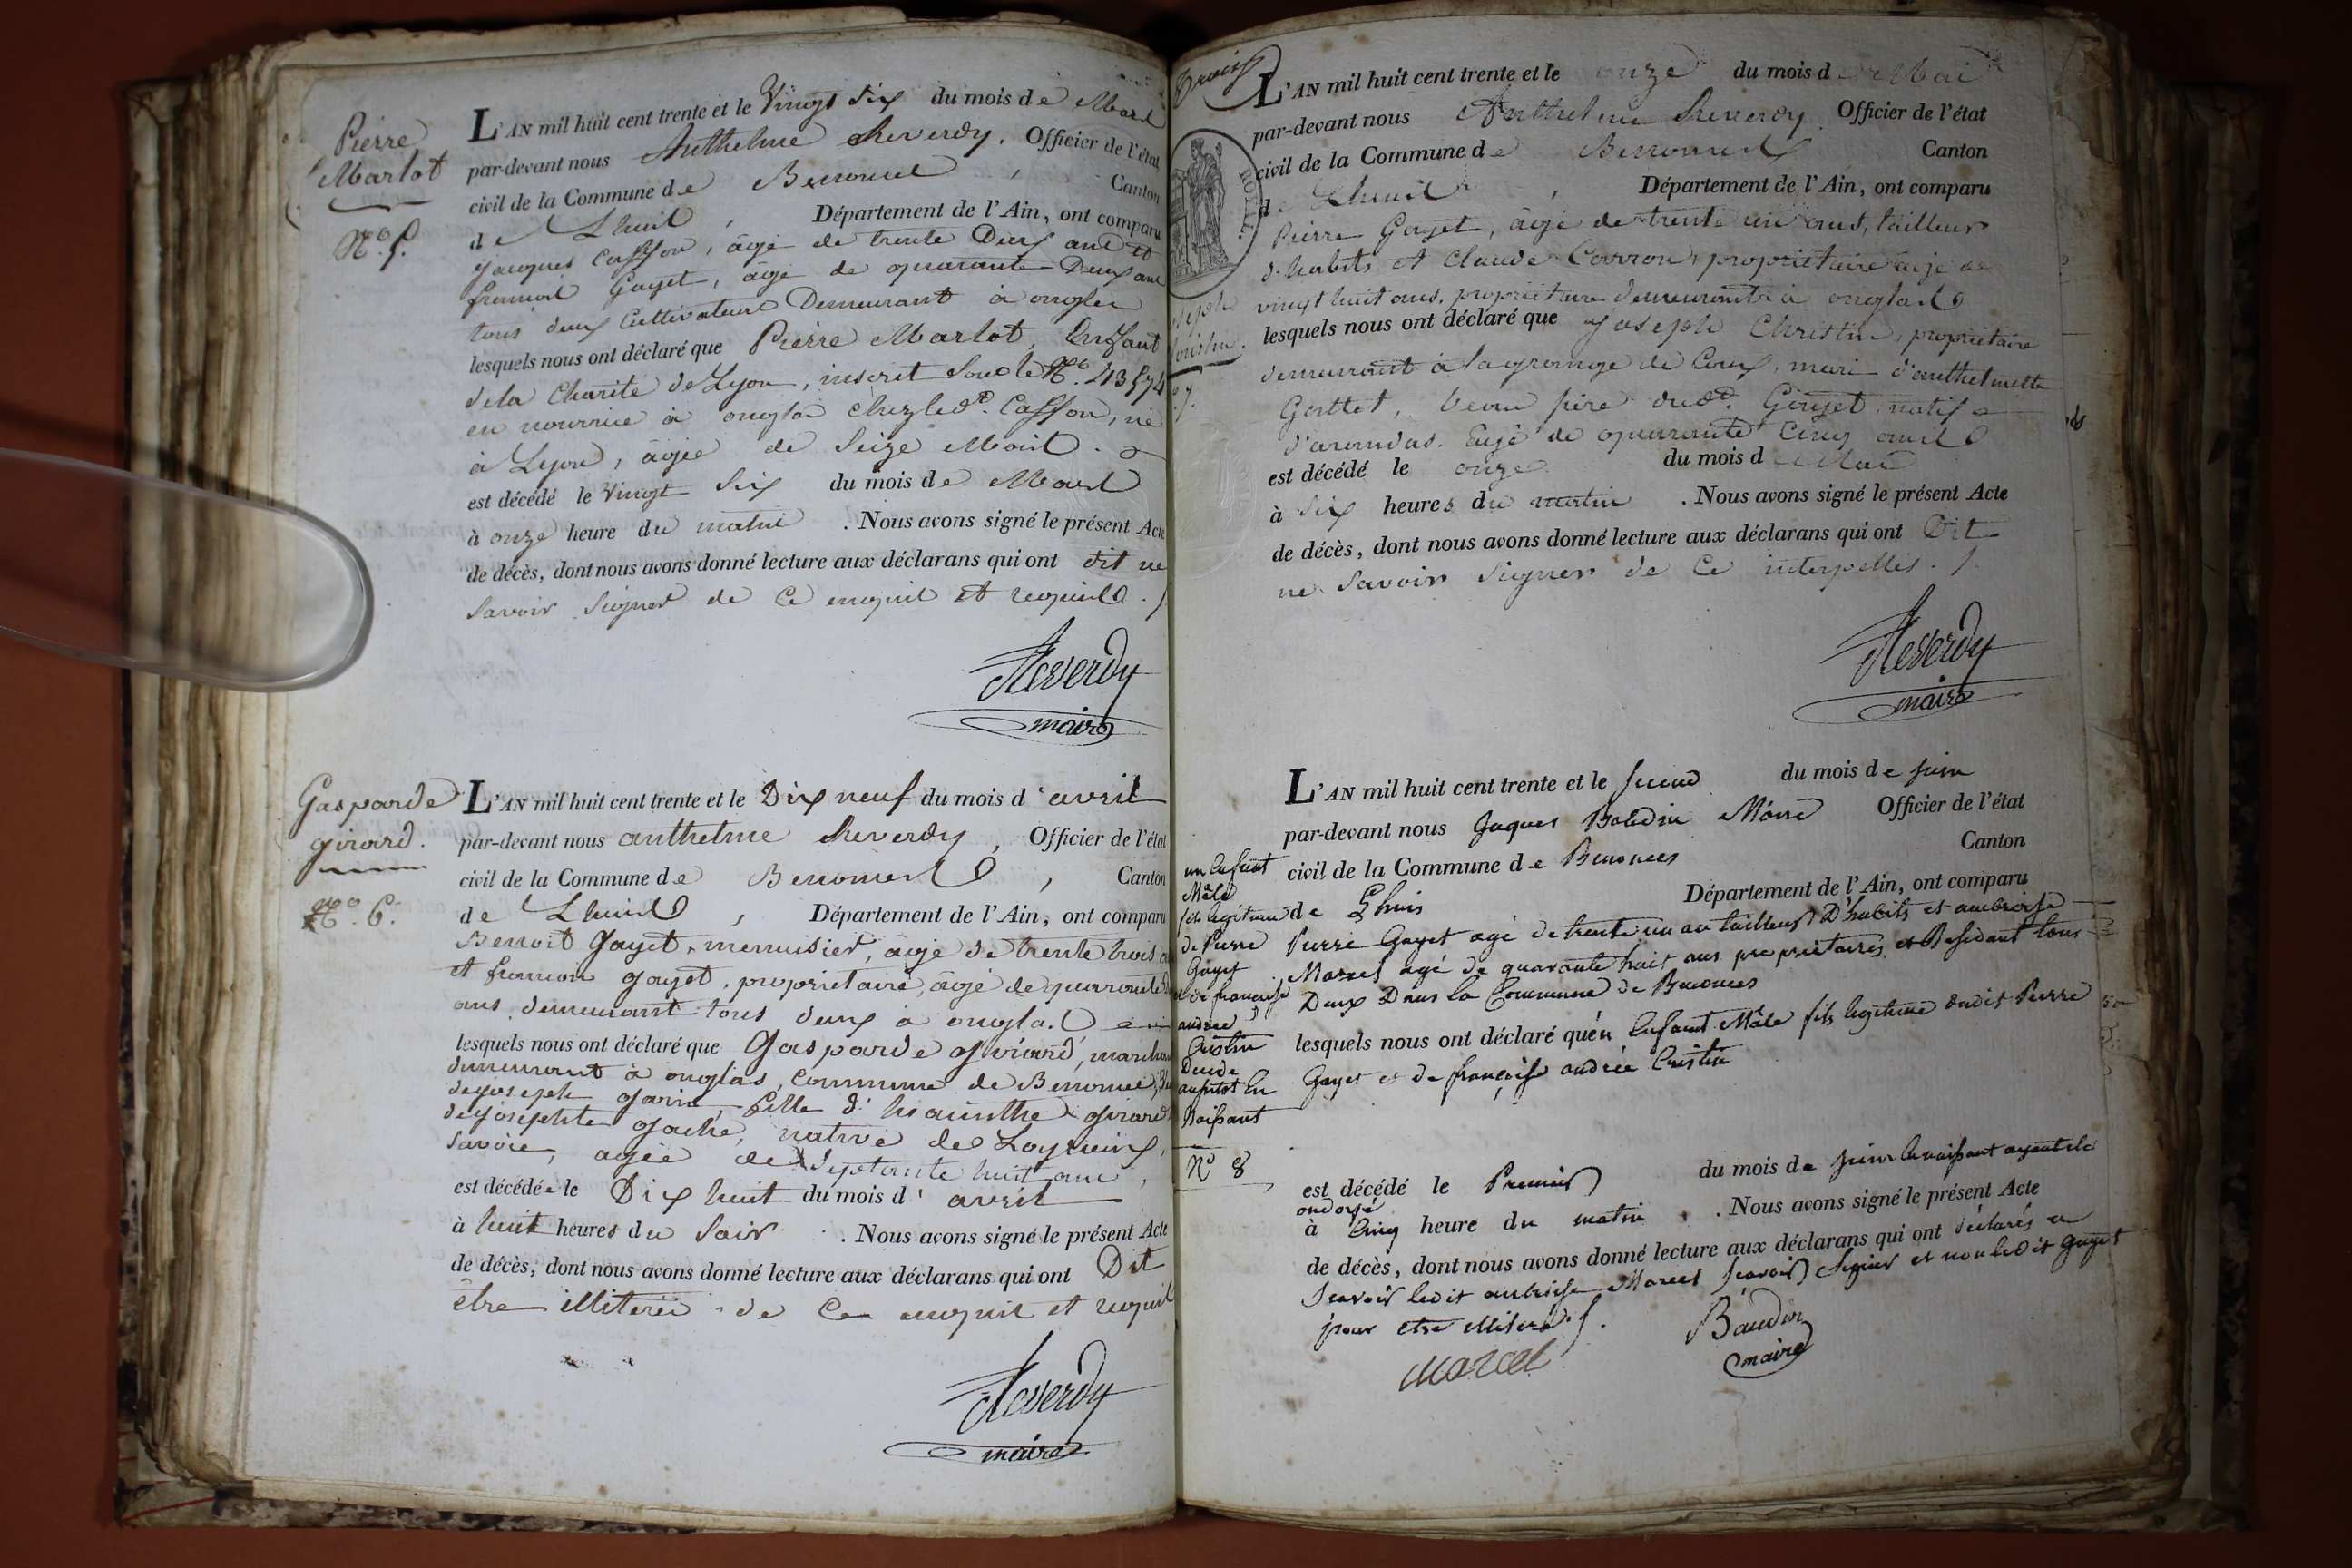 Pierre
Marlot
N.º 5.
L'AN mil huit cent trente et le Vingt Six du mois de Mars
par-devant nous Anthelme Reverdy, Officier de l'état
civil de la Commune de Benonces, Canton
de Lhuis, Département de l'Ain, ont comparu
Jacques Casson, âgé de trente Deux ans et
françois Gayet, âgé de quarante Deux ans
tous deux Cultivateurs Demeurant à onglas
lesquels nous ont déclaré que Pierre Marlot, Enfant
de la Charité de Lyon, inscrit sous le Nº. 43574
en nourrice à onglas chez led.t Casson, né
à Lyon, âgée de Seize Mois.
est décédé le Vingt Six du mois de Mars
à onze heure du matin. Nous avons signé le présent Acte
de décès, dont nous avons donné lecture aux déclarans qui ont dit ne
Savoir Signer de Ce enquis et requis ./.
Reverdy
maire
Gasparde
girard.
Nº. 6.
L'AN mil huit cent trente et le Dix neuf du mois d'avril
par-devant nous anthelme Reverdy, Officier de l'état
civil de la Commune de Benonces, Canton
de Lhuis, Département de l'Ain, ont comparu
Benoit Gayet, menuisier, âgé de trente trois
et françois gayet, propriétaire, âgé de quarante
ans, demeurant tous deux à onglas
lesquels nous ont déclaré que Gasparde girard,
demeurant à onglas, commune de Benonces,
de joseph garin, fille d'hiacinthe girard
de josephte gache, native de
Savoie, agée de Septante huit ans,
est décédée le Dix huit du mois d'avril
à huit heures du Soir. Nous avons signé le présent Acte
de décès, dont nous avons donné lecture aux déclarans qui ont Dit
être illiterés de Ce enquis et requis
Reverdy
maire
L'AN mil huit cent trente et le onze du mois de Mai
par-devant nous Anthelme Reverdy Officier de l'état
civil de la Commune de Benonces Canton
de Lhuis, Département de l'Ain, ont comparu
Pierre Gayet, âgé de trente un ans, tailleur
d'habits et Claude Courron, propriétaire âgé de
vingt huit ans, propriétaire demeurants à onglas
lesquels nous ont déclaré que Joseph Christin, propriétaire
demeurant à la grange de Coux, mari d'anthelmette
Gottet, beau père dud.t Gayet natif
d'arandas. Agé de quarante Cinq ans
est décédé le onze du mois de Mai
à Six heures du matin. Nous avons signé le présent Acte
de décès, dont nous avons donné lecture aux déclarans qui ont Dit
ne Savoir Signer de Ce interpellés ./.
Reverdy
maire
un Enfant
Mâle
fils legitime
de Pierre
Gayet
et de françoise
andrée
Cristin
Decedé
aussitot En
Naissant
Nº 8
L'AN mil huit cent trente et le Second du mois de juin
par-devant nous Jaques Baudin Maire Officier de l'état
civil de la Commune de Benonces Canton
de Lhuis Département de l'Ain, ont comparu
Pierre Gayet agé de trente un an tailleur D'habits et ambroise
Marcel agé de quarante huit ans propriétaires et Residant tous
Deux Dans la Commune de Benonces
lesquels nous ont déclaré qu'un Enfant Mâle fils legitime dudit Pierre
Gayet et de françoise andrée Cristin
est décédé le Premier du mois de juin En naissant ayant ete
ondoyé
à Cinq heure du matin. Nous avons signé le présent Acte
de décès, dont nous avons donné lecture aux déclarans qui ont déclarés
Scavoir ledit ambroise Marcel Scavoir Signer et non ledit Gayet
pour etre illiteré ./.
Marcel
Baudin
maire